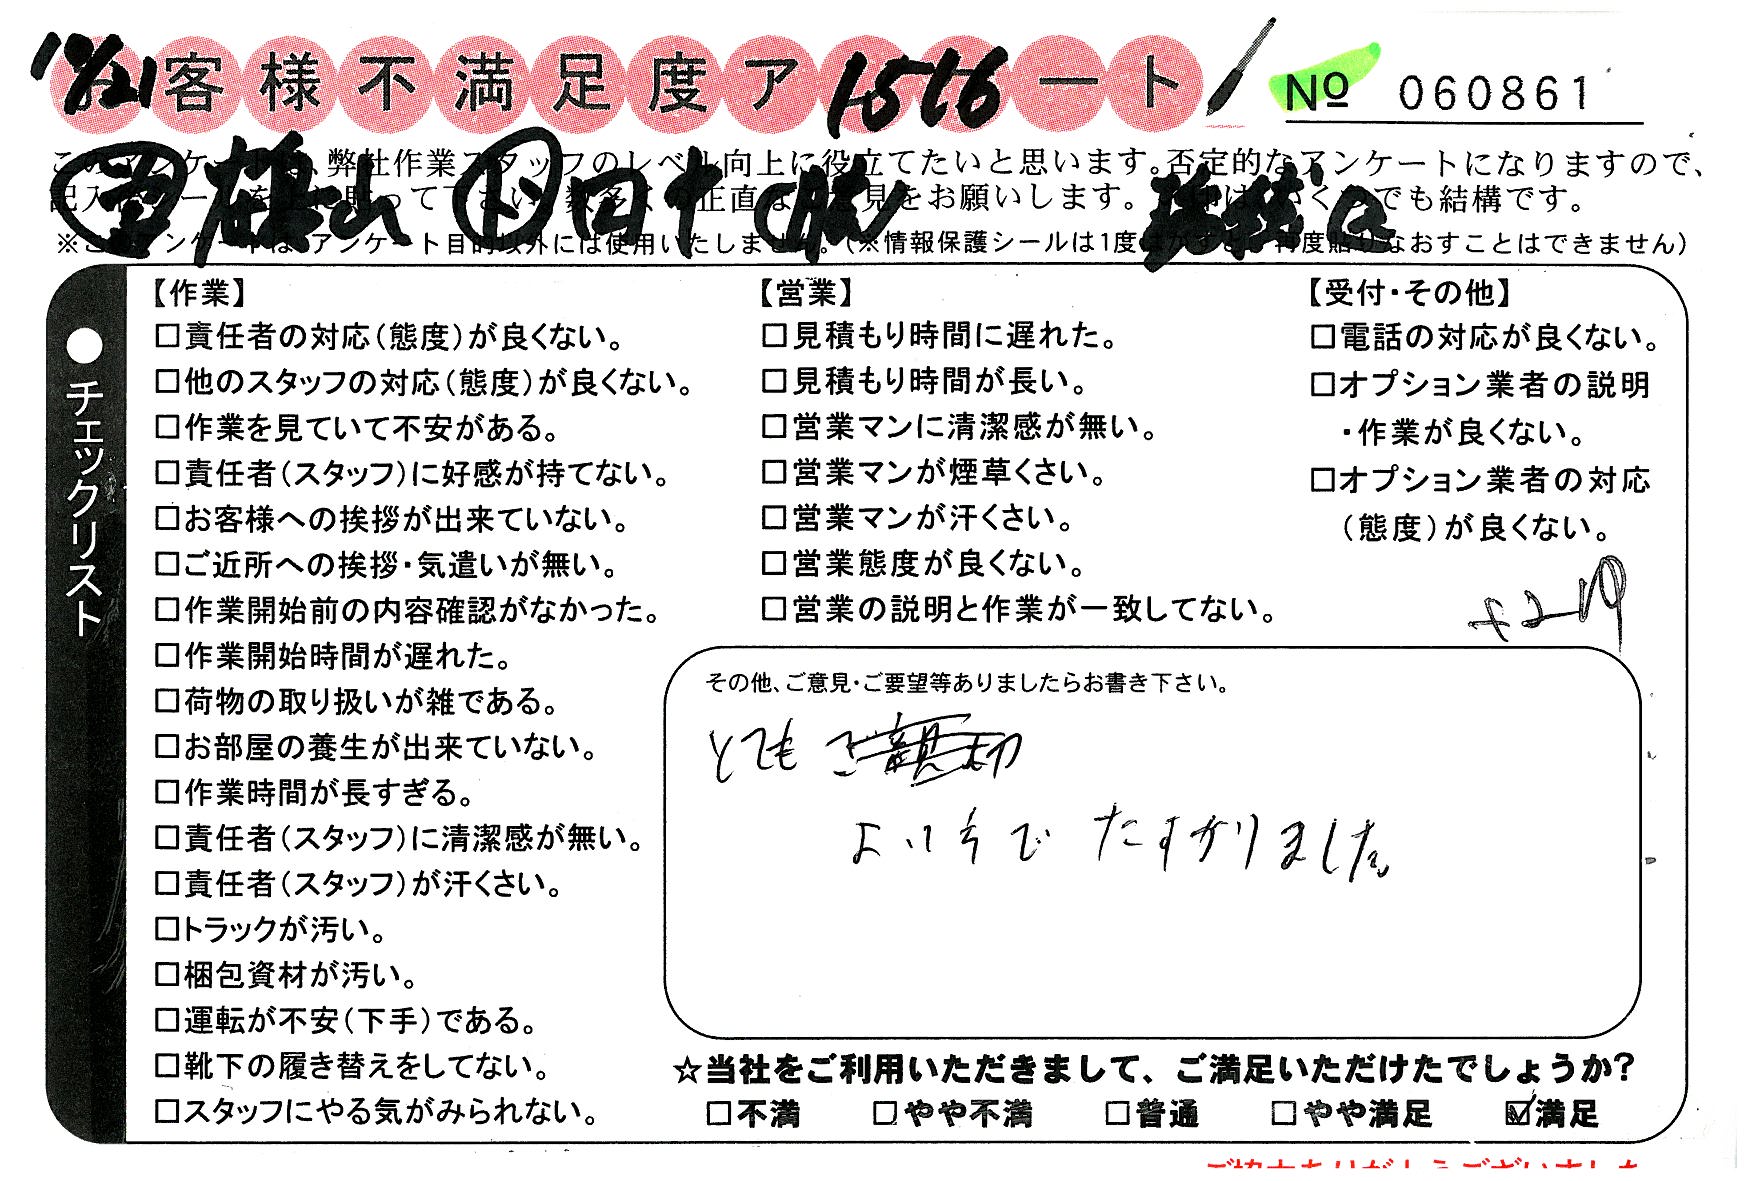 客様不満足度ア ート
1576
No 060861
このアンケートは、弊社作業スタッフのレベル向上に役立てたいと思います。否定的なアンケートになりますので、
記入 数多くの正直な 見をお願いします。 いくつでも結構です。
※このアンケートは、アンケート目的以外には使用いたしません。(※情報保護シールは1度はがすと、再度貼りなおすことはできません)
●チェックリスト
【作業】
□責任者の対応(態度)が良くない。
□他のスタッフの対応(態度)が良くない。
□作業を見ていて不安がある。
□責任者(スタッフ)に好感が持てない。
□お客様への挨拶が出来ていない。
□ご近所への挨拶・気遣いが無い。
□作業開始前の内容確認がなかった。
□作業開始時間が遅れた。
□荷物の取り扱いが雑である。
□お部屋の養生が出来ていない。
□作業時間が長すぎる。
□責任者(スタッフ)に清潔感が無い。
□責任者(スタッフ)が汗くさい。
□トラックが汚い。
□梱包資材が汚い。
□運転が不安(下手)である。
□靴下の履き替えをしてない。
□スタッフにやる気がみられない。
【営業】
□見積もり時間に遅れた。
□見積もり時間が長い。
□営業マンに清潔感が無い。
□営業マンが煙草くさい。
□営業マンが汗くさい。
□営業態度が良くない。
□営業の説明と作業が一致してない。
【受付・その他】
□電話の対応が良くない。
□オプション業者の説明
・作業が良くない。
□オプション業者の対応
(態度)が良くない。
その他、ご意見・ご要望等ありましたらお書き下さい。
とても ご親切
よい方で たすかりました。
☆当社をご利用いただきまして、ご満足いただけたでしょうか?
□不満 □やや不満 □普通 □やや満足 ☑満足
ご協力ありがとうございました